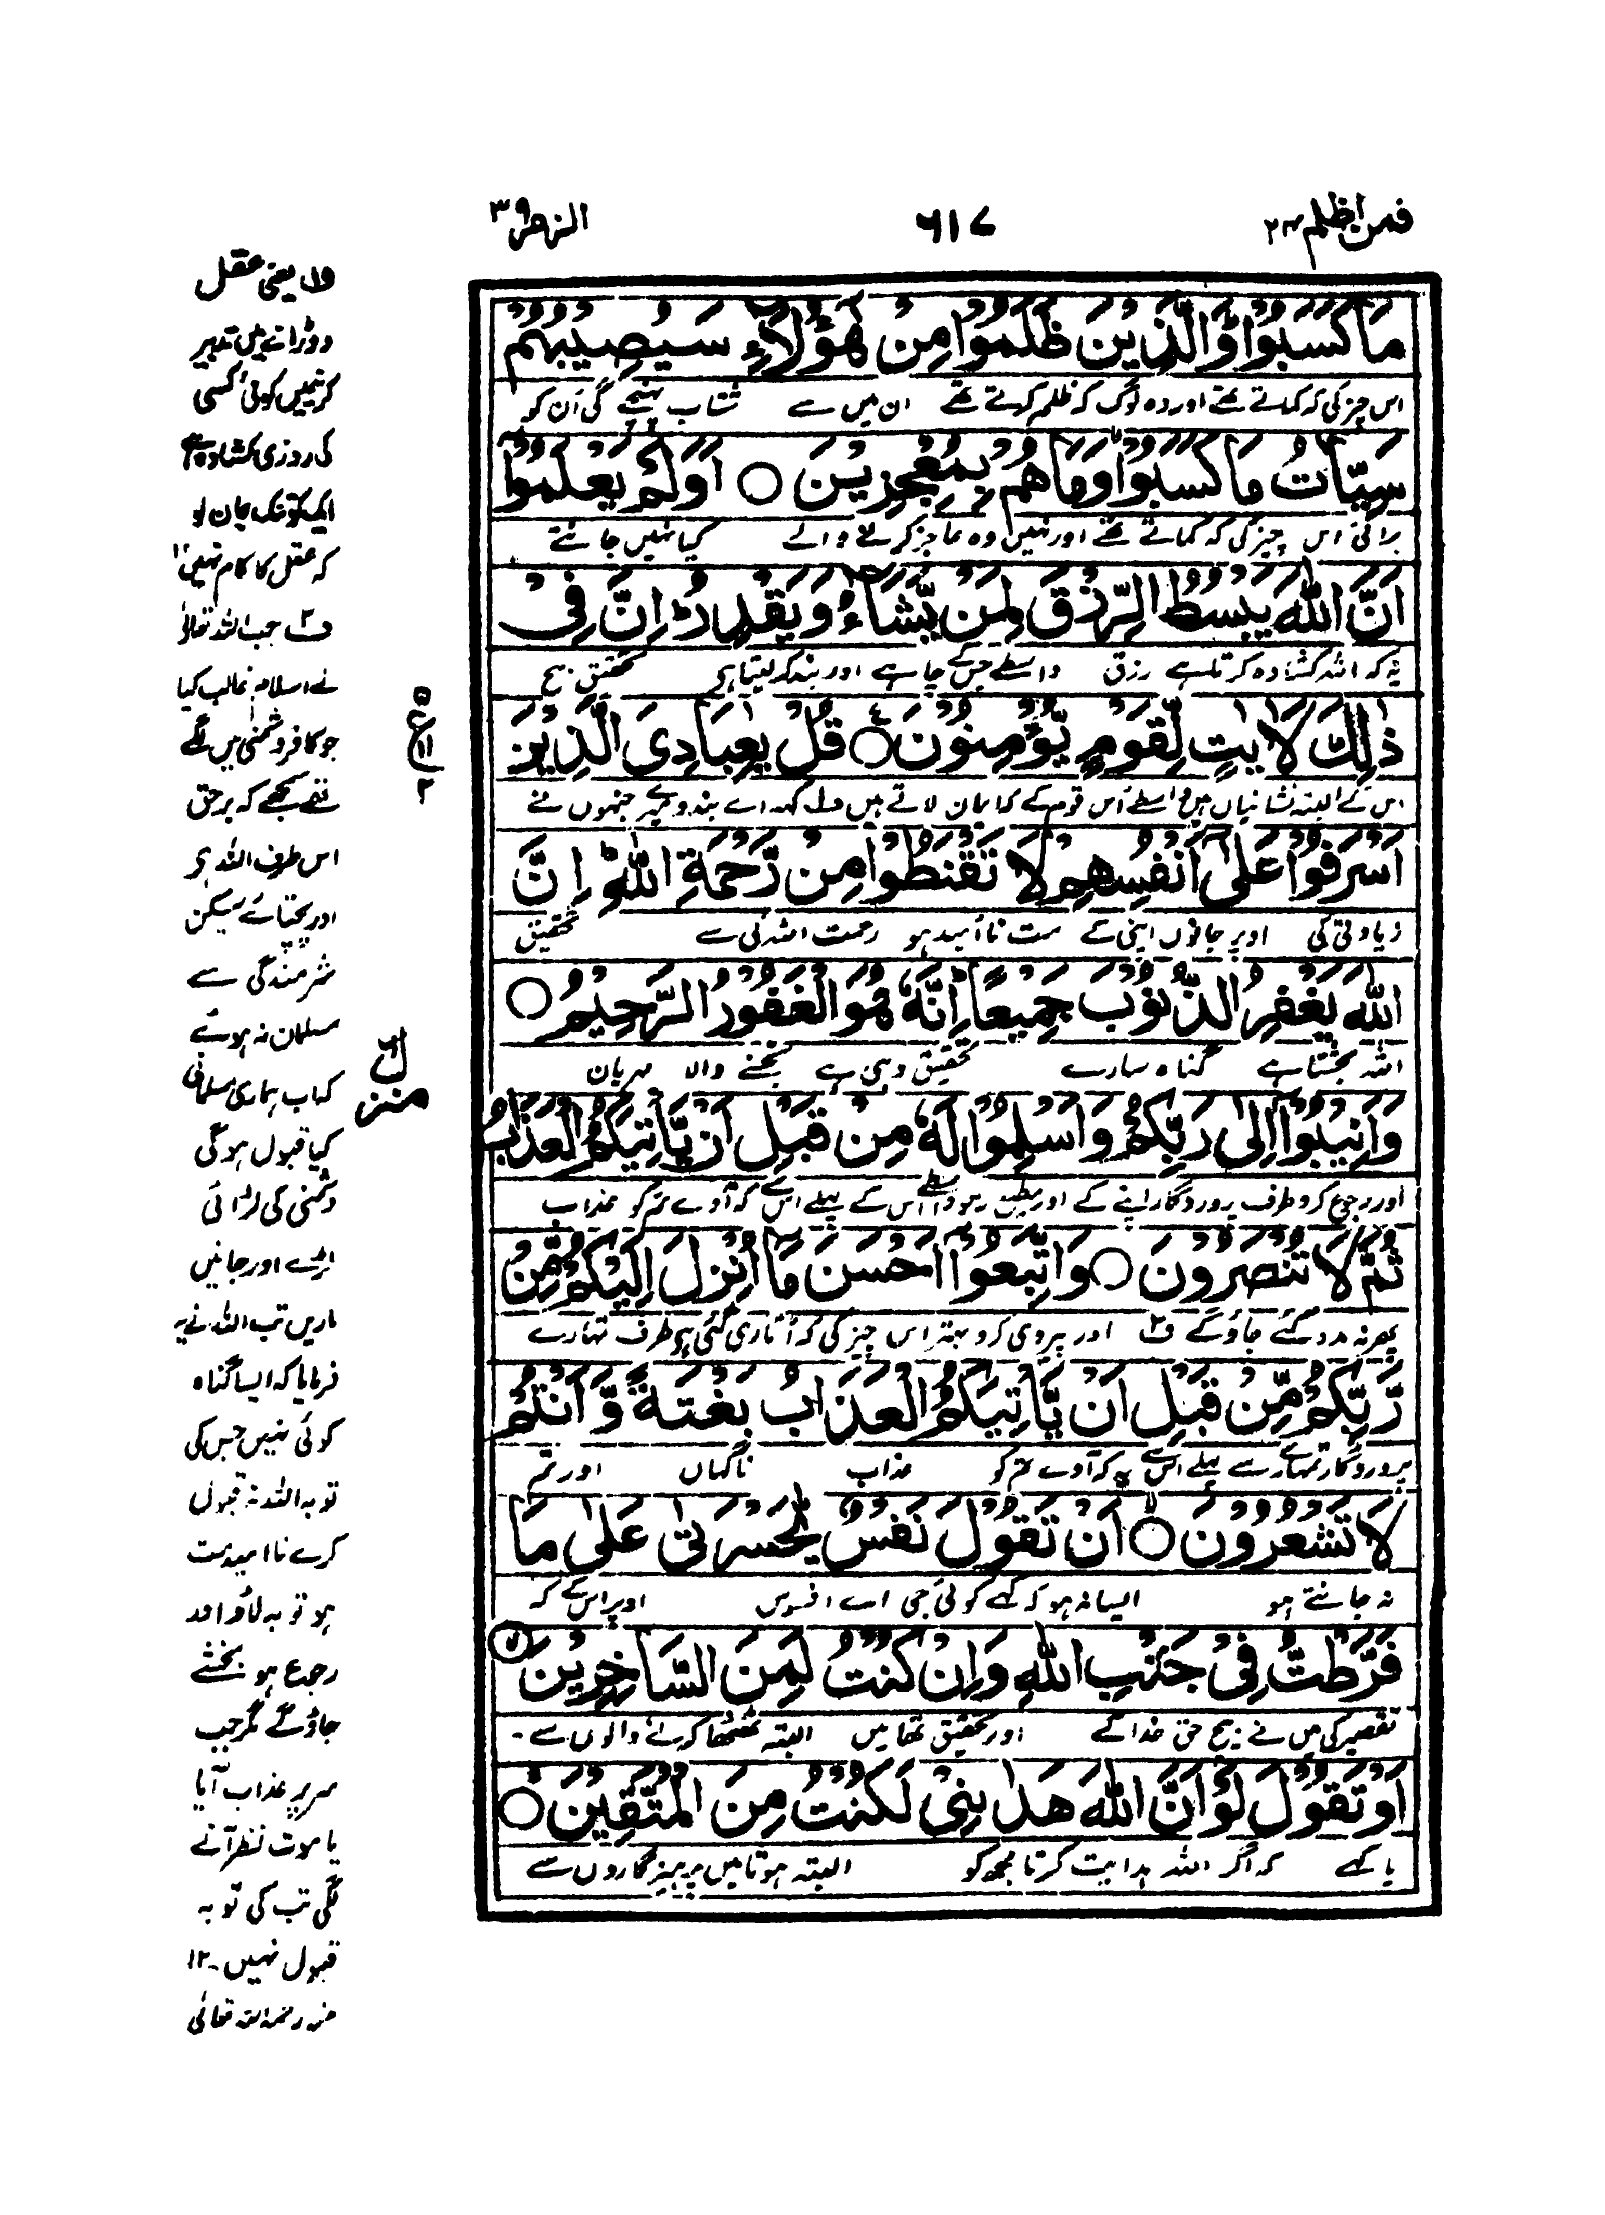 فمن اظلم ۲۴
۶۱۷
الزمر ۳۹
مَا كَسَبُوْا ؕ وَالَّذِيْنَ ظَلَمُوْا مِنْ هٰٓؤُلَآءِ سَيُصِيْبُهُمْ
اس چیز کی کہ کماتے تھے اور وہ لوگ کہ ظلم کرتے تھے ان میں سے شتاب پہنچے گی اُن کو
سَيِّاٰتُ مَا كَسَبُوْا ۙ وَمَا هُمْ بِمُعْجِزِيْنَ ○ اَوَلَمْ يَعْلَمُوْٓا
برائی اس چیز کی کہ کماتے تھے اور نہیں وہ عاجز کرنے والے کیا نہیں جانتے
اَنَّ اللّٰهَ يَبْسُطُ الرِّزْقَ لِمَنْ يَّشَآءُ وَيَقْدِرُ ؕ اِنَّ فِيْ
یہ کہ اللہ کشادہ کرتا ہے رزق واسطے جس کے چاہے اور بند کر لیتا ہے تحقیق بیچ
ذٰلِكَ لَاٰيٰتٍ لِّقَوْمٍ يُّؤْمِنُوْنَ ○ قُلْ يٰعِبَادِيَ الَّذِيْنَ
اس کے البتہ نشانیاں ہیں واسطے اُس قوم کے کہ ایمان لاتے ہیں ف۱ کہہ اے بندو میرے جنہوں نے
اَسْرَفُوْا عَلٰٓى اَنْفُسِهِمْ لَا تَقْنَطُوْا مِنْ رَّحْمَةِ اللّٰهِ ؕ اِنَّ
زیادتی کی اوپر جانوں اپنی کے مت ناامید ہو رحمت اللہ کی سے تحقیق
اللّٰهَ يَغْفِرُ الذُّنُوْبَ جَمِيْعًا ؕ اِنَّهٗ هُوَ الْغَفُوْرُ الرَّحِيْمُ ○
اللہ بخشتا ہے گناہ سارے تحقیق وہی ہے بخشنے والا مہربان
وَاَنِيْبُوْٓا اِلٰى رَبِّكُمْ وَاَسْلِمُوْا لَهٗ مِنْ قَبْلِ اَنْ يَّاْتِيَكُمُ الْعَذَابُ
اور رجوع کرو طرف پروردگار اپنے کے اور مطیع ہو واسطے اس کے پہلے اس کے کہ آوے تم کو عذاب
ثُمَّ لَا تُنْصَرُوْنَ ○ وَاتَّبِعُوْٓا اَحْسَنَ مَآ اُنْزِلَ اِلَيْكُمْ مِّنْ
پھر نہ مدد کئے جاؤ گے ف۲ اور پیروی کرو بہتر اس چیز کی کہ اُتاری گئی ہے طرف تمہارے
رَّبِّكُمْ مِّنْ قَبْلِ اَنْ يَّاْتِيَكُمُ الْعَذَابُ بَغْتَةً وَّاَنْتُمْ
پروردگار تمہارے سے پہلے اس سے کہ آوے تم کو عذاب ناگہاں اور تم
لَا تَشْعُرُوْنَ ○ اَنْ تَقُوْلَ نَفْسٌ يّٰحَسْرَتٰى عَلٰى مَا
نہ جانتے ہو ایسا نہ ہو کہ کہے کوئی جی اے افسوس اوپر اس کے کہ
فَرَّطْتُّ فِيْ جَنْۢبِ اللّٰهِ وَاِنْ كُنْتُ لَمِنَ السَّاخِرِيْنَ
تقصیر کی میں نے بیچ حق خدا کے اور تحقیق تھا میں البتہ ٹھٹھا کرنے والوں سے۔
اَوْ تَقُوْلَ لَوْ اَنَّ اللّٰهَ هَدٰىنِيْ لَكُنْتُ مِنَ الْمُتَّقِيْنَ ○
یا کہے کہ اگر اللہ ہدایت کرتا مجھ کو البتہ ہوتا میں پرہیزگاروں سے
ف۱ یعنی عقل
دوڑانے میں تدبیر
کرنیمیں کوئی کسی
کی روزی کشادہ ہے
ایک کو تنگ جان لو
کہ عقل کا کام نہیں ۱۲
ف۲ جب اللہ تعالیٰ
نے اسلام غالب کیا
جو کافر دشمنی میں لگے
تھے سمجھے کہ برحق
اس طرف اللہ ہے
اور پچتائے لیکن
شرمندگی سے
مسلمان نہ ہوئے
کہ اب ہماری مسلمانی
کیا قبول ہوگی
دشمنی کی لڑائی
لڑے اور جانیں
ماریں تب اللہ نے یہ
فرمایا کہ ایسا گناہ
کوئی نہیں جس کی
توبہ اللہ نہ قبول
کرے ناامید مت
ہو توبہ لاؤ اور
رجوع ہو بخشے
جاؤ گے مگر جب
سر پر عذاب آیا
یا موت نظر آنے
لگی تب کی توبہ
قبول نہیں ۔۱۲
منہ رحمہ اللہ تعالٰی
۵
ع
۱۱
۲
منزل ۶